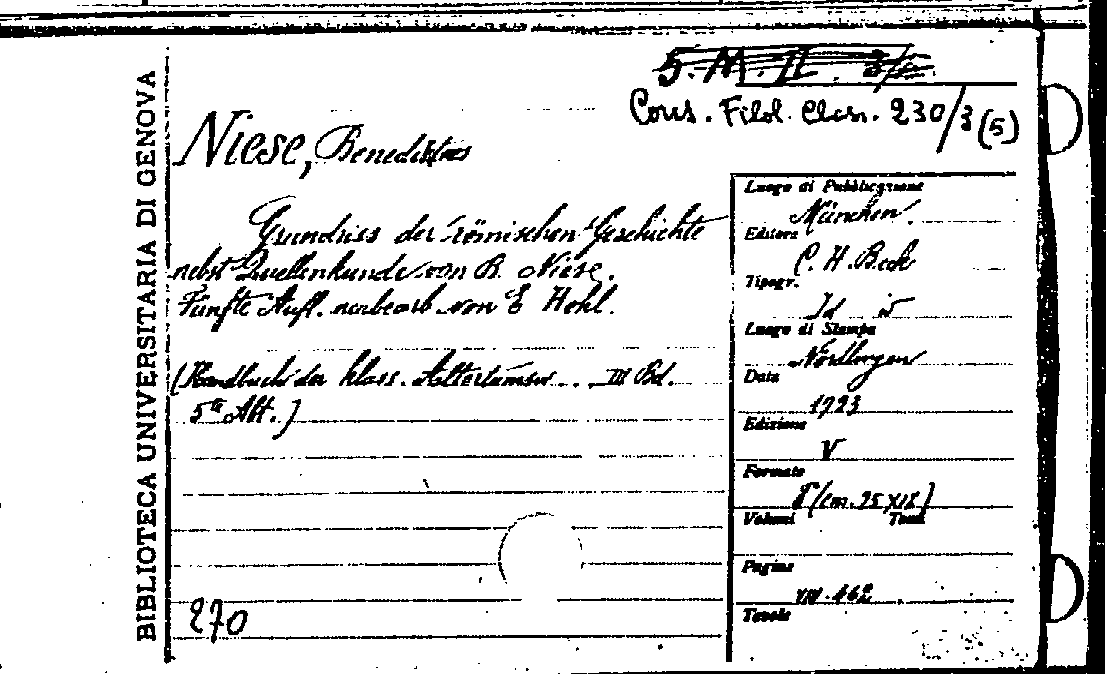 BIBLIOTECA UNIVERSITARIA DI GENOVA
5. M. II. 3/
Cons. Filol. Class. 230/3 (5)
Niese, Benediktus
Grundriss der römischen Geschichte
nebst Quellenkunde von B. Niese.
Fünfte Aufl. neubearb. von E Hohl.
(Handbuch der klass. Altertumsw... III Bd.
5te Abt.)
270
Luogo di Pubblicazione
München.
Editore
C. H. Beck
Tipogr.
Id
Luogo di Stampa
Nördlingen
Data
1923
Edizione
V
Formato
8° (cm. 25 X 18)
Volumi Tomi
Pagine
VIII. 462
Tavole